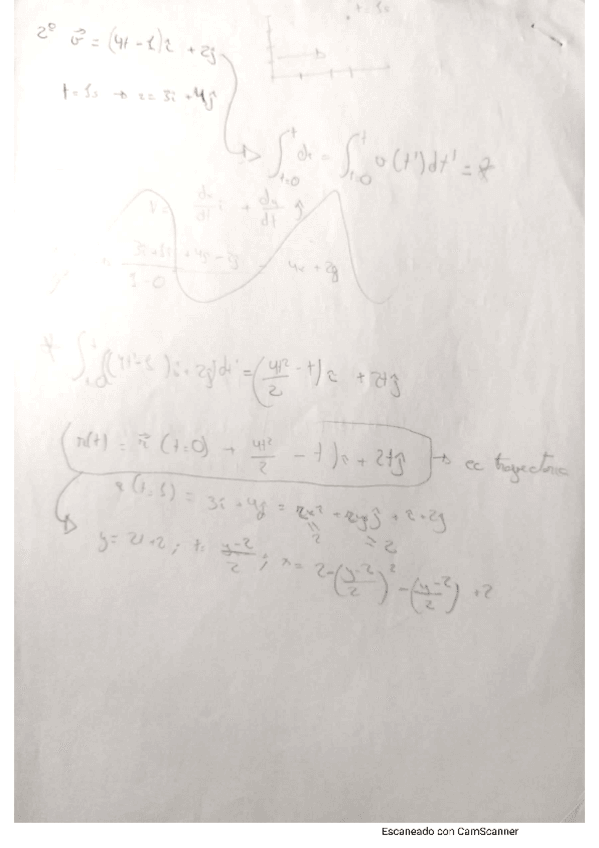 2º v⃗ = (4t - 1)i + 2j
t = 1s → r = 3i + 4j
∫ₜ₌₀ᵗ dr = ∫ₜ₌₀ᵗ v(t')dt' = *
V = dx/dt i + dy/dt j
4i + 2j
1 - 0
* ∫ₜ₌₀ᵗ ((4t' - 1)i + 2j)dt' = (4t²/2 - t)i + 2tj
r(t) = r⃗ (t=0) + 4t²/2 - t)i + 2tj → ec trayectoria
r(t=1) = 3i + 4j = r₀ₓi + r₀ᵧj + i + 2j
= 2 = 2
y = 2t + 2 ; t = (y-2)/2 ; x = 2·((y-2)/2)² - ((y-2)/2) + 2
Escaneado con CamScanner